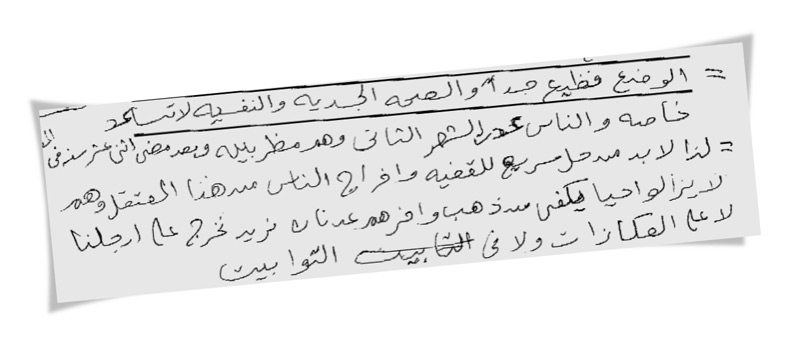 = الوضع فظيع جداً والصحه الجسديه والنفسيه لاتساعد
خاصه والناس عدا الشهر الثاني وهم مظربيله وبعد مضى اثنى عشر سنه في
= لذا لابد من حل سريع للقضيه وافراج الناس من هذا المعتقل وهم
لا يزالو احيا يكفي من ذهب وافرهم عدنان نريد نخرج على ارجلنا
لا على العكازات ولا في التوابيت